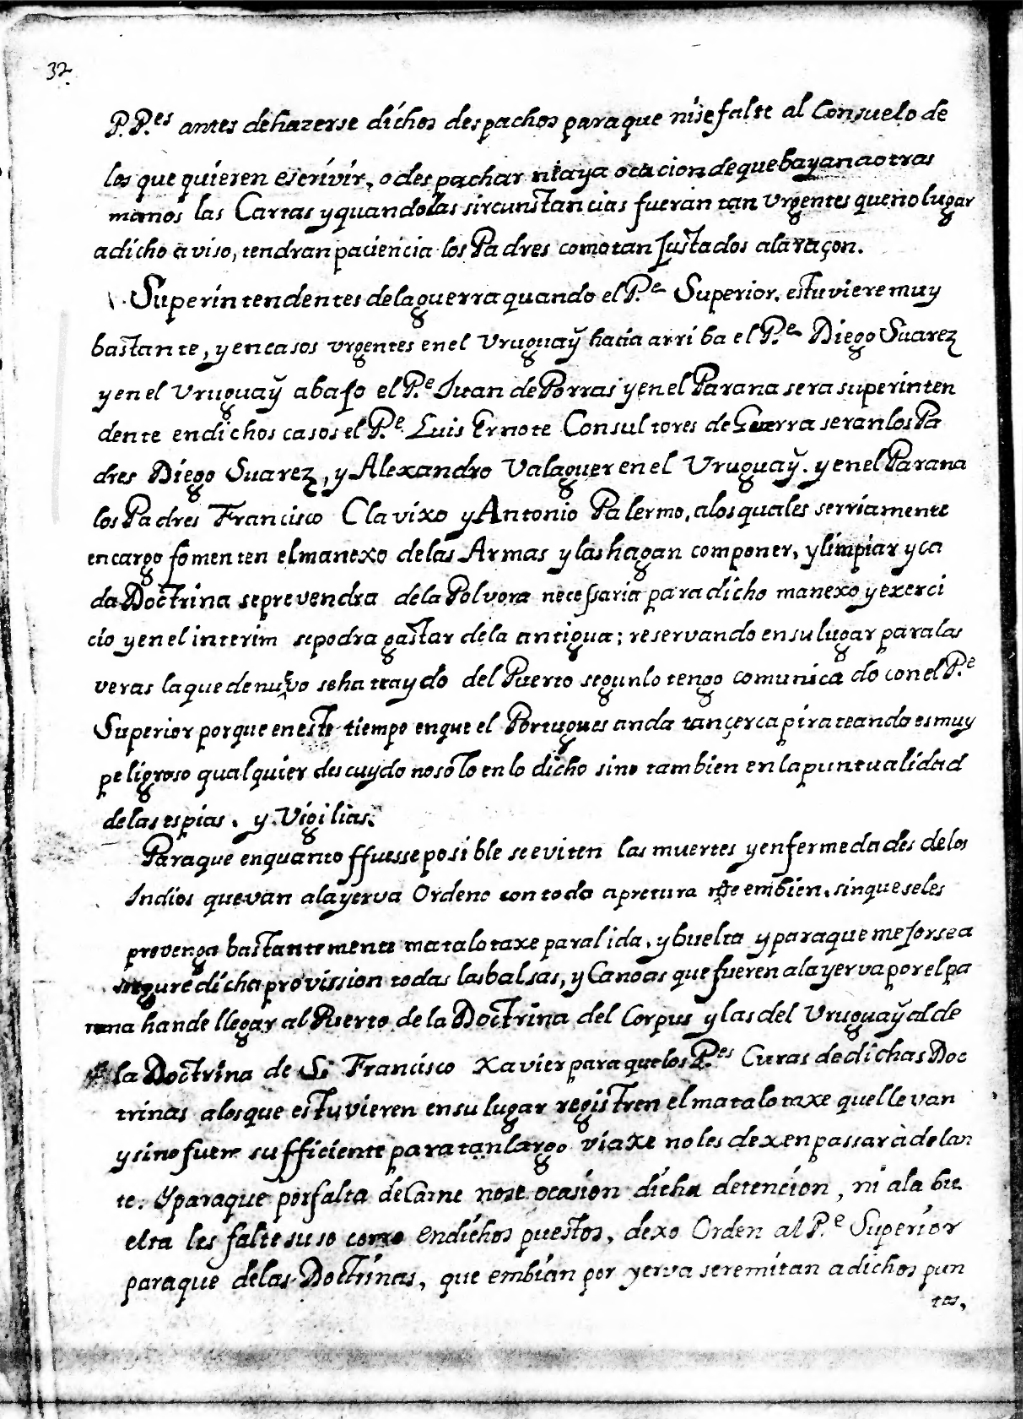 32
P.P.es antes de hazerse dichos despachos para que ni se falte al Consuelo de
los que quieren escrivir, o despachar ni aya ocacion de que bayan a otras
manos las Cartas y quando las sircunstancias fueran tan Vrgentes que no lugar
a dicho aviso, tendran paciencia los Padres como tan Justados a la raçon.
Superintendentes de la guerra quando el P.e Superior. estuviere muy
bastante, y en casos vrgentes en el Uruguaÿ hacia arriba el P.e Diego Suarez
y en el Uruguaÿ abaJo el P.e Juan de Porras y en el Parana sera superinten
dente en dichos casos el P.e Luis Ernote Consultores de Guerra seran los Pa
dres Diego Suarez, y Alexandro Valaguer en el Uruguaÿ. y en el Parana
los Padres Francisco Clavixo y Antonio Palermo, a los quales serriamente
encargo fomenten el manexo de las Armas y las hagan componer, y limpiar y ca
da Doctrina se prevendra de la Polvora necessaria para dicho manexo y exerci
cio y en el interim se podra gastar de la antigua; reservando en su lugar para las
veras la que de nuevo se ha traydo del Puerto segun lo tengo comunicado con el P.e
Superior porque en este tiempo en que el Portugues anda tan çerca pirateando es muy
peligroso qualquier descuydo no sólo en lo dicho sino tambien en la puntualidad
de las espias. y Vigilias.
Para que en quanto ffuesse posible se eviten las muertes y enfermedades de los
Indios que van a la yerva Ordeno con todo apretura no se embien. sin que se les
prevenga bastantemente matalotaxe para l ida, y buelta y para que meJor se a
segure dicha provission todas las balsas, y Canoas que fueren a la yerva por el pa
rana han de llegar al Puerto de la Doctrina del Corpus y las del Uruguaÿ al de
la Doctrina de S. Francisco Xavier para que los P.es Curas de dichas Doc
trinas a los que estuvieren en su lugar registren el matalotaxe que llevan
y si no fuere sufficiente para tan largo viaxe no les dexen passar adelan
te. Y para que por falta de Carne no se ocasion dicha detencion, ni a la bu
elta les falte su so como en dichos puestos, dexo Orden al P.e Superior
para que de las Doctrinas, que embian por yerva se remitan a dichos pun
tos,